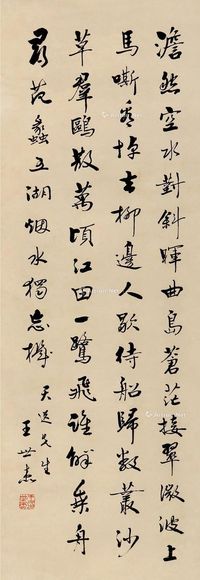 澹然空水對斜暉曲島蒼茫接翠微波上
馬嘶看棹去柳邊人歇待船歸數叢沙
草羣鷗散萬頃江田一鷺飛誰解乘舟
尋范蠡五湖烟水獨忘機
天 先生
王世杰